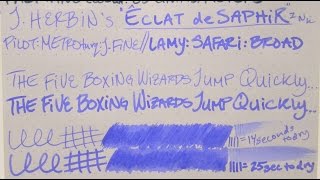 J. HERBIN'S "ÉCLAT de SAPHIR"
PILOT: METROPOLITAN: FINE//LAMY: SAFARI: BROAD
THE FIVE BOXING WIZARDS JUMP QUICKLY...
THE FIVE BOXING WIZARDS JUMP QUICKLY...
= 14 seconds to dry
= 25 sec to dry